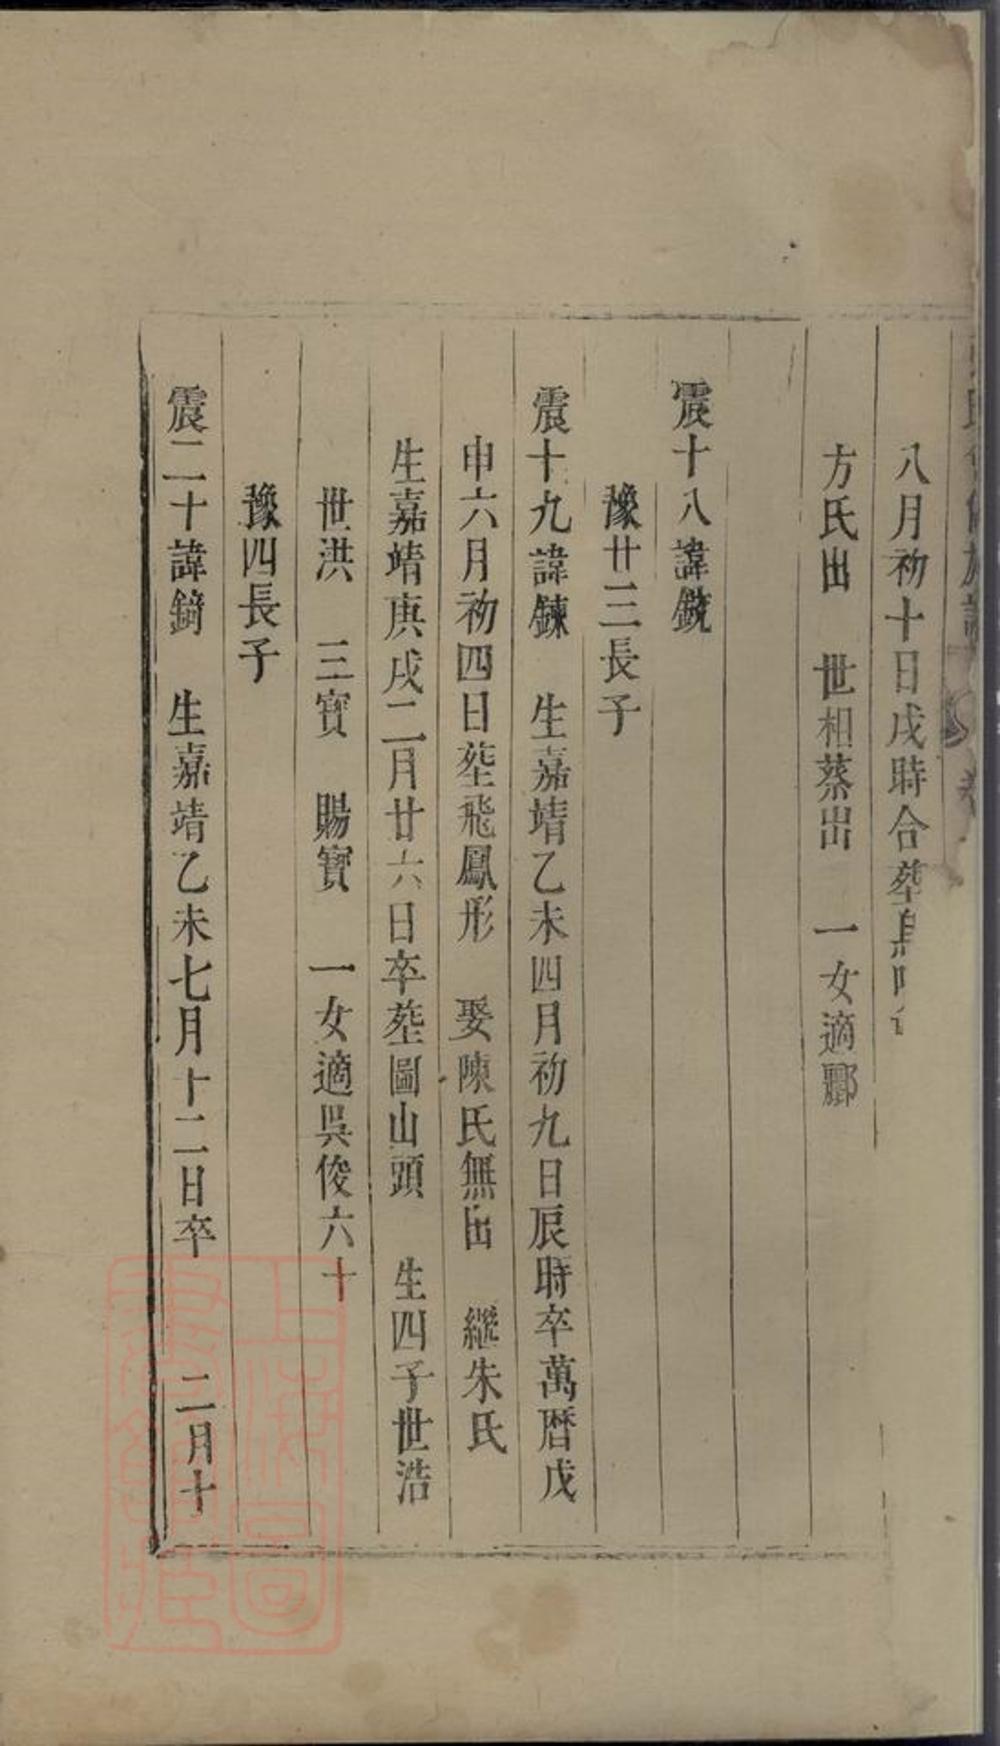 八月初十日戌時合塟
方氏出　世相蔡出　一女適酈
震十八諱鏡
豫廿三長子
震十九諱鍊　生嘉靖乙未四月初九日辰時卒萬曆戊
申六月初四日塟飛鳳形　娶陳氏無出　繼朱氏
生嘉靖庚戌二月廿六日卒塟圖山頭　生四子世浩
世洪　三寳　賜寳　一女適吳俊六十
豫四長子
震二十諱錡　生嘉靖乙未七月十二日卒　二月十
上海圖書館藏